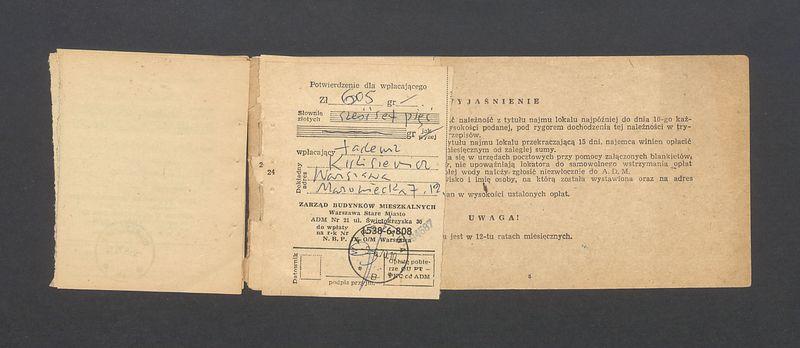 Potwierdzenie dla wpłacającego
Zł 605 gr
Słownie
złotych sześćset pięć
gr jak wyżej
wpłacający Tadeusz
Dokładny adres
Warszawa
Mazowiecka 7, 12
ZARZĄD BUDYNKÓW MIESZKALNYCH
Warszawa Stare Miasto
ADM Nr 21 ul. Świętokrzyska 36
do wpłaty
na r-k Nr 1538-6-808
N. B. P. IX O/M Warszawa
Datownik
Opłatę pobie-
rze OU PT —
podpis przyjm.
2
24
WYJAŚNIENIE
należność z tytułu najmu lokalu najpóźniej do dnia 10-go każ-
wysokości podanej, pod rygorem dochodzenia tej należności w try-
przepisów.
tytułu najmu lokalu przekraczającą 15 dni, najemca winien opłacić
miesięcznym od zaległej sumy.
się w urzędach pocztowych przy pomocy załączonych blankietów,
wody należy zgłosić niezwłocznie do A. D. M.
nie upoważniają lokatora do samowolnego wstrzymania opłat
i imię osoby, na którą została wystawiona oraz na adres
w wysokości ustalonych opłat.
UWAGA!
jest w 12-tu ratach miesięcznych.